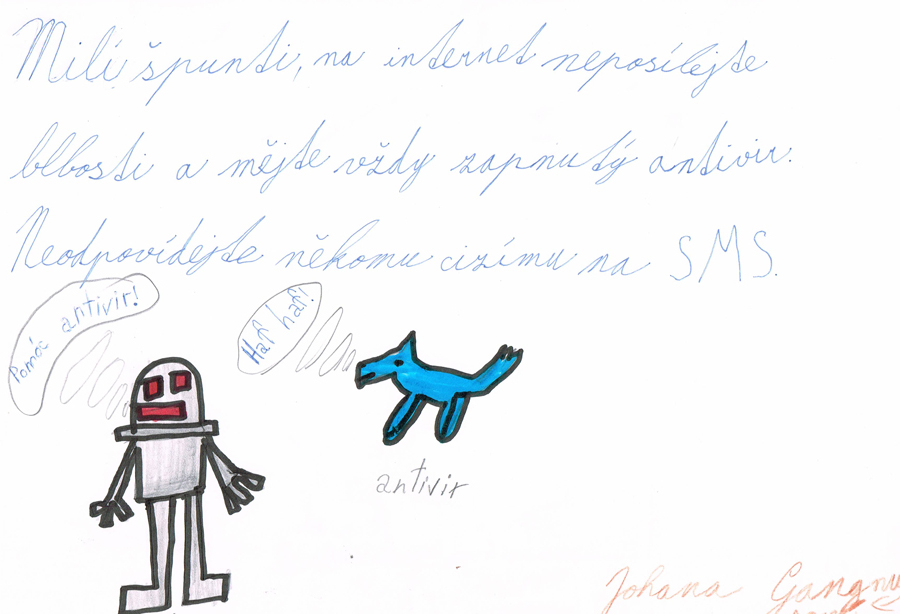 Milí špunti, na internet neposílejte
blbosti a mějte vždy zapnutý antivir.
Neodpovídejte někomu cizímu na SMS.
Pomóc antivir!
Haf haf!
antivir
Johana